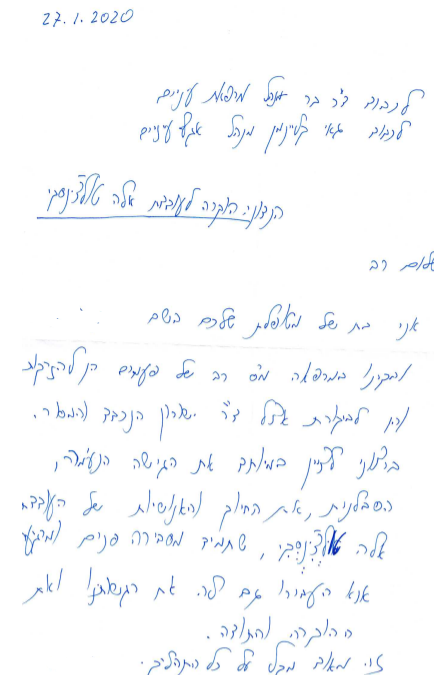 27.1.2020
לכבוד ד"ר בר מנהל מרפאת עיניים
לכבוד גאי קליינמן מנהל אגף עיניים
הנדון: הוקרה לעובדת אלה
שלום רב
אני בת של מטופלת שלכם בשם
ובקרנו במרפאה מס' רב של פעמים הן להזרקות
והן לביקורת אצל ד"ר ישרון הנכבד והמסור.
ברצוני לציין במיוחד את הגישה הנעימה,
הסבלנית, את החיוך והאנושיות של העובדת
אלה, שתמיד מסבירה פנים ומרגיעה
אנא העבירו גם לה את רגשותינו ואת
ההוקרה והתודה.
זה מאוד מקל על כל התהליך.